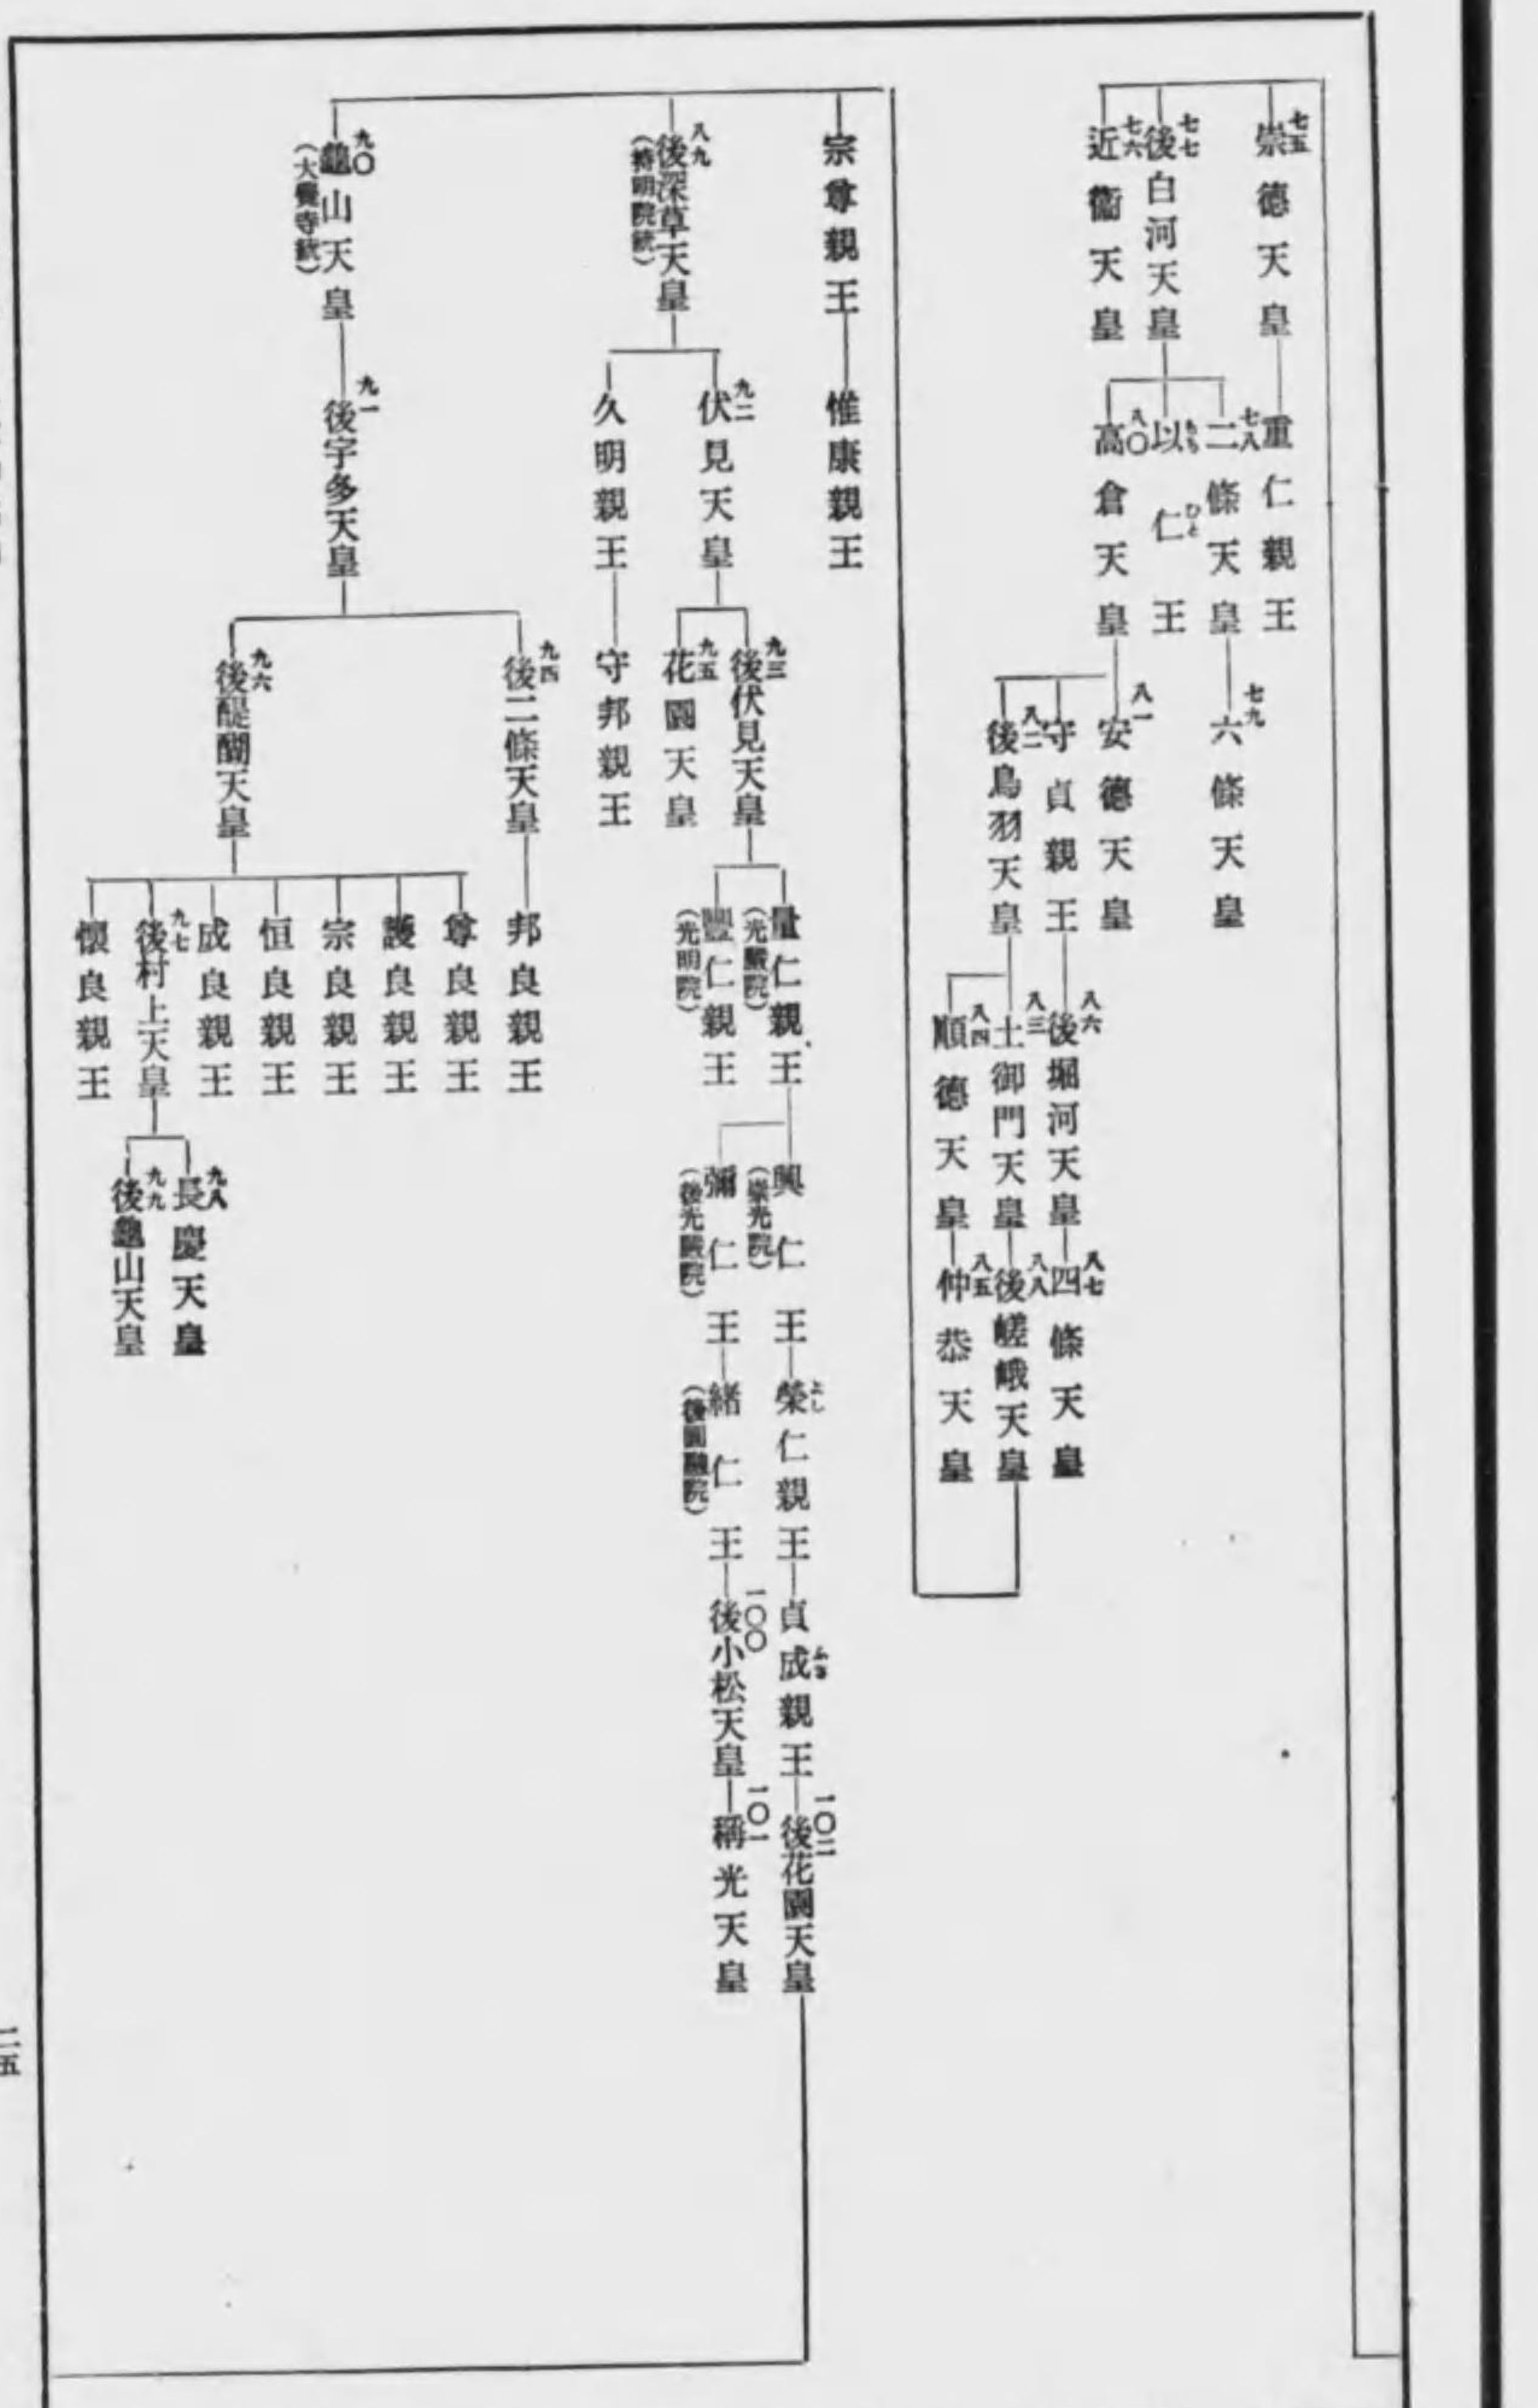 七五
崇德天皇
重仁親王
七七
後白河天皇
七八
二條天皇
七九
六條天皇
以仁王
もち
ひと
八〇
高倉天皇
八一
安德天皇
守貞親王
八六
後堀河天皇
八七
四條天皇
八二
後鳥羽天皇
八三
土御門天皇
八八
後嵯峨天皇
八四
順德天皇
八五
仲恭天皇
七六
近衞天皇
宗尊親王
惟康親王
八九
後深草天皇
(持明院統)
九二
伏見天皇
九三
後伏見天皇
量仁親王
(光嚴院)
興仁王
(崇光院)
榮仁親王
よし
貞成親王
ふさ
一〇二
後花園天皇
彌仁王
(後光嚴院)
緒仁王
(後圓融院)
一〇〇
後小松天皇
一〇一
稱光天皇
豐仁親王
(光明院)
九五
花園天皇
久明親王
守邦親王
九〇
龜山天皇
(大覺寺統)
九一
後宇多天皇
九四
後二條天皇
邦良親王
九六
後醍醐天皇
尊良親王
護良親王
宗良親王
恒良親王
成良親王
九七
後村上天皇
九八
長慶天皇
九九
後龜山天皇
懷良親王
二五